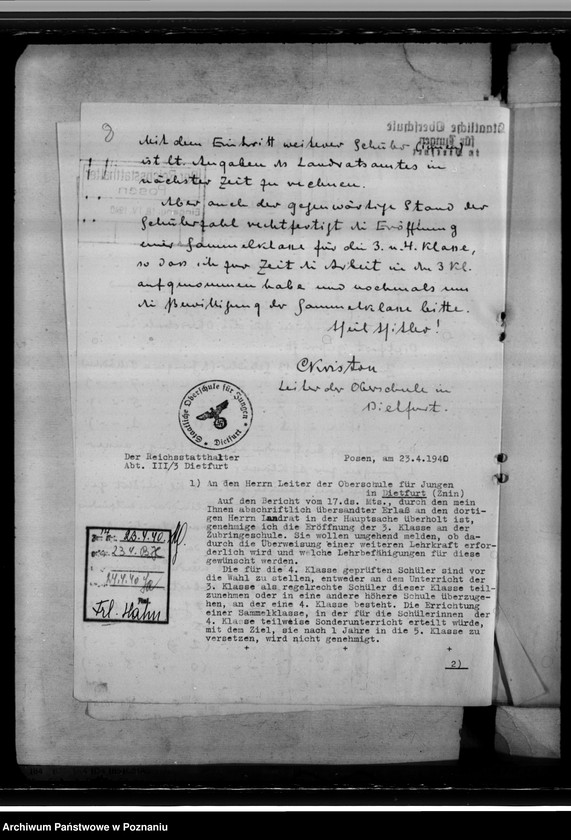 Mit dem Eintritt weiterer Schüler
ist lt. Angaben des Landratsamtes in
nächster Zeit zu rechnen.
Aber auch der gegenwärtige Stand der
Schülerzahl rechtfertigt die Eröffnung
einer Sammelklasse für die 3. u. 4. Klasse,
so dass ich zur Zeit die Arbeit in der 3 Kl.
aufgenommen habe und nochmals um
die Bewilligung der Sammelklasse bitte.
Heil Hitler!
Leiter der Oberschule in
Dietfurt.
Staatliche Oberschule für Jungen
Dietfurt
Der Reichsstatthalter
Abt. III/3 Dietfurt
Posen, am 23.4.1940
1) An den Herrn Leiter der Oberschule für Jungen
in Dietfurt (Znin)
Auf den Bericht vom 17.ds. Mts., durch den mein
Ihnen abschriftlich übersandter Erlaß an den dorti-
gen Herrn Landrat in der Hauptsache überholt ist,
genehmige ich die Eröffnung der 3. Klasse an der
Zubringeschule. Sie wollen umgehend melden, ob da-
durch die Überweisung einer weiteren Lehrkraft erfor-
derlich wird und welche Lehrbefähigungen für diese
gewünscht werden.
Die für die 4. Klasse geprüften Schüler sind vor
die Wahl zu stellen, entweder am Unterricht der
3. Klasse als regelrechte Schüler dieser Klasse teil-
zunehmen oder in eine andere höhere Schule überzuge-
hen, an der eine 4. Klasse besteht. Die Errichtung
einer Sammelklasse, in der für die Schülerinnen der
4. Klasse teilweise Sonderunterricht erteilt würde,
mit dem Ziel, sie nach 1 Jahre in die 5. Klasse zu
versetzen, wird nicht genehmigt.
+ + +
2)
23.4.40
23.4.
24.4.40
Frl. Hahn
Archiwum Państwowe w Poznaniu